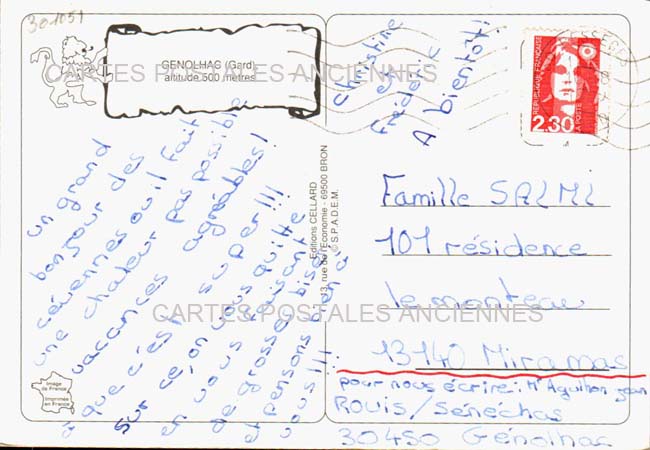 301051
GENOLHAC (Gard)
altitude 500 mètres
CARTES POSTALES ANCIENNES
un grand
bonjour des
cévennes ou il fait
une chaleur pas possible
vacances agréables!
que c'est super!!!
Sur ce, on vous quitte
en vous faisant
de grosses bises
et pensons bien à
vous!!!
Christine
et
Fréderic
A bientôt!
Editions CELLARD
rue de l'Economie - 69500 BRON
© S.P.A.D.E.M.
REPUBLIQUE FRANÇAISE
2.30
LA POSTE
Famille SALMI
101 résidence
le monteau
13140 Miramas
CARTES POSTALES ANCIENNES
pour nous écrire: Mr Aguilhon Jean
ROUIS/Sénéchas
30450 Génolhac
Image
de France
Imprimée
en France